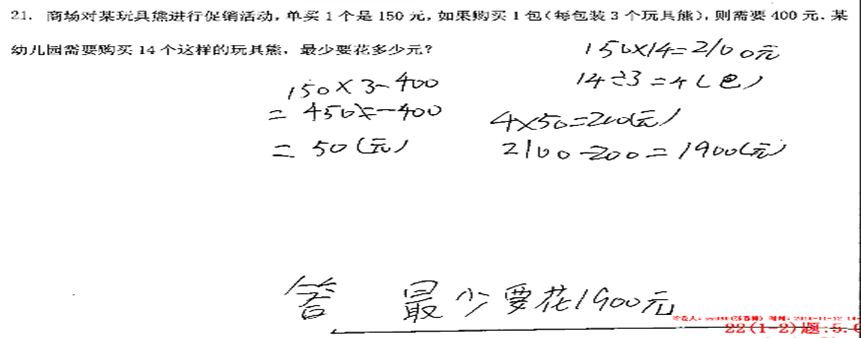 21. 商场对某玩具熊进行促销活动,单买1个是150元,如果购买1包(每包装3个玩具熊),则需要400元.某
幼儿园需要购买14个这样的玩具熊,最少要花多少元?
150×3-400
=450-400
=50(元)
150×14=2100元
14÷3=4(包)
4×50=200(元)
2100-200=1900(元)
答 最少要花1900元
22(1-2)题:5.